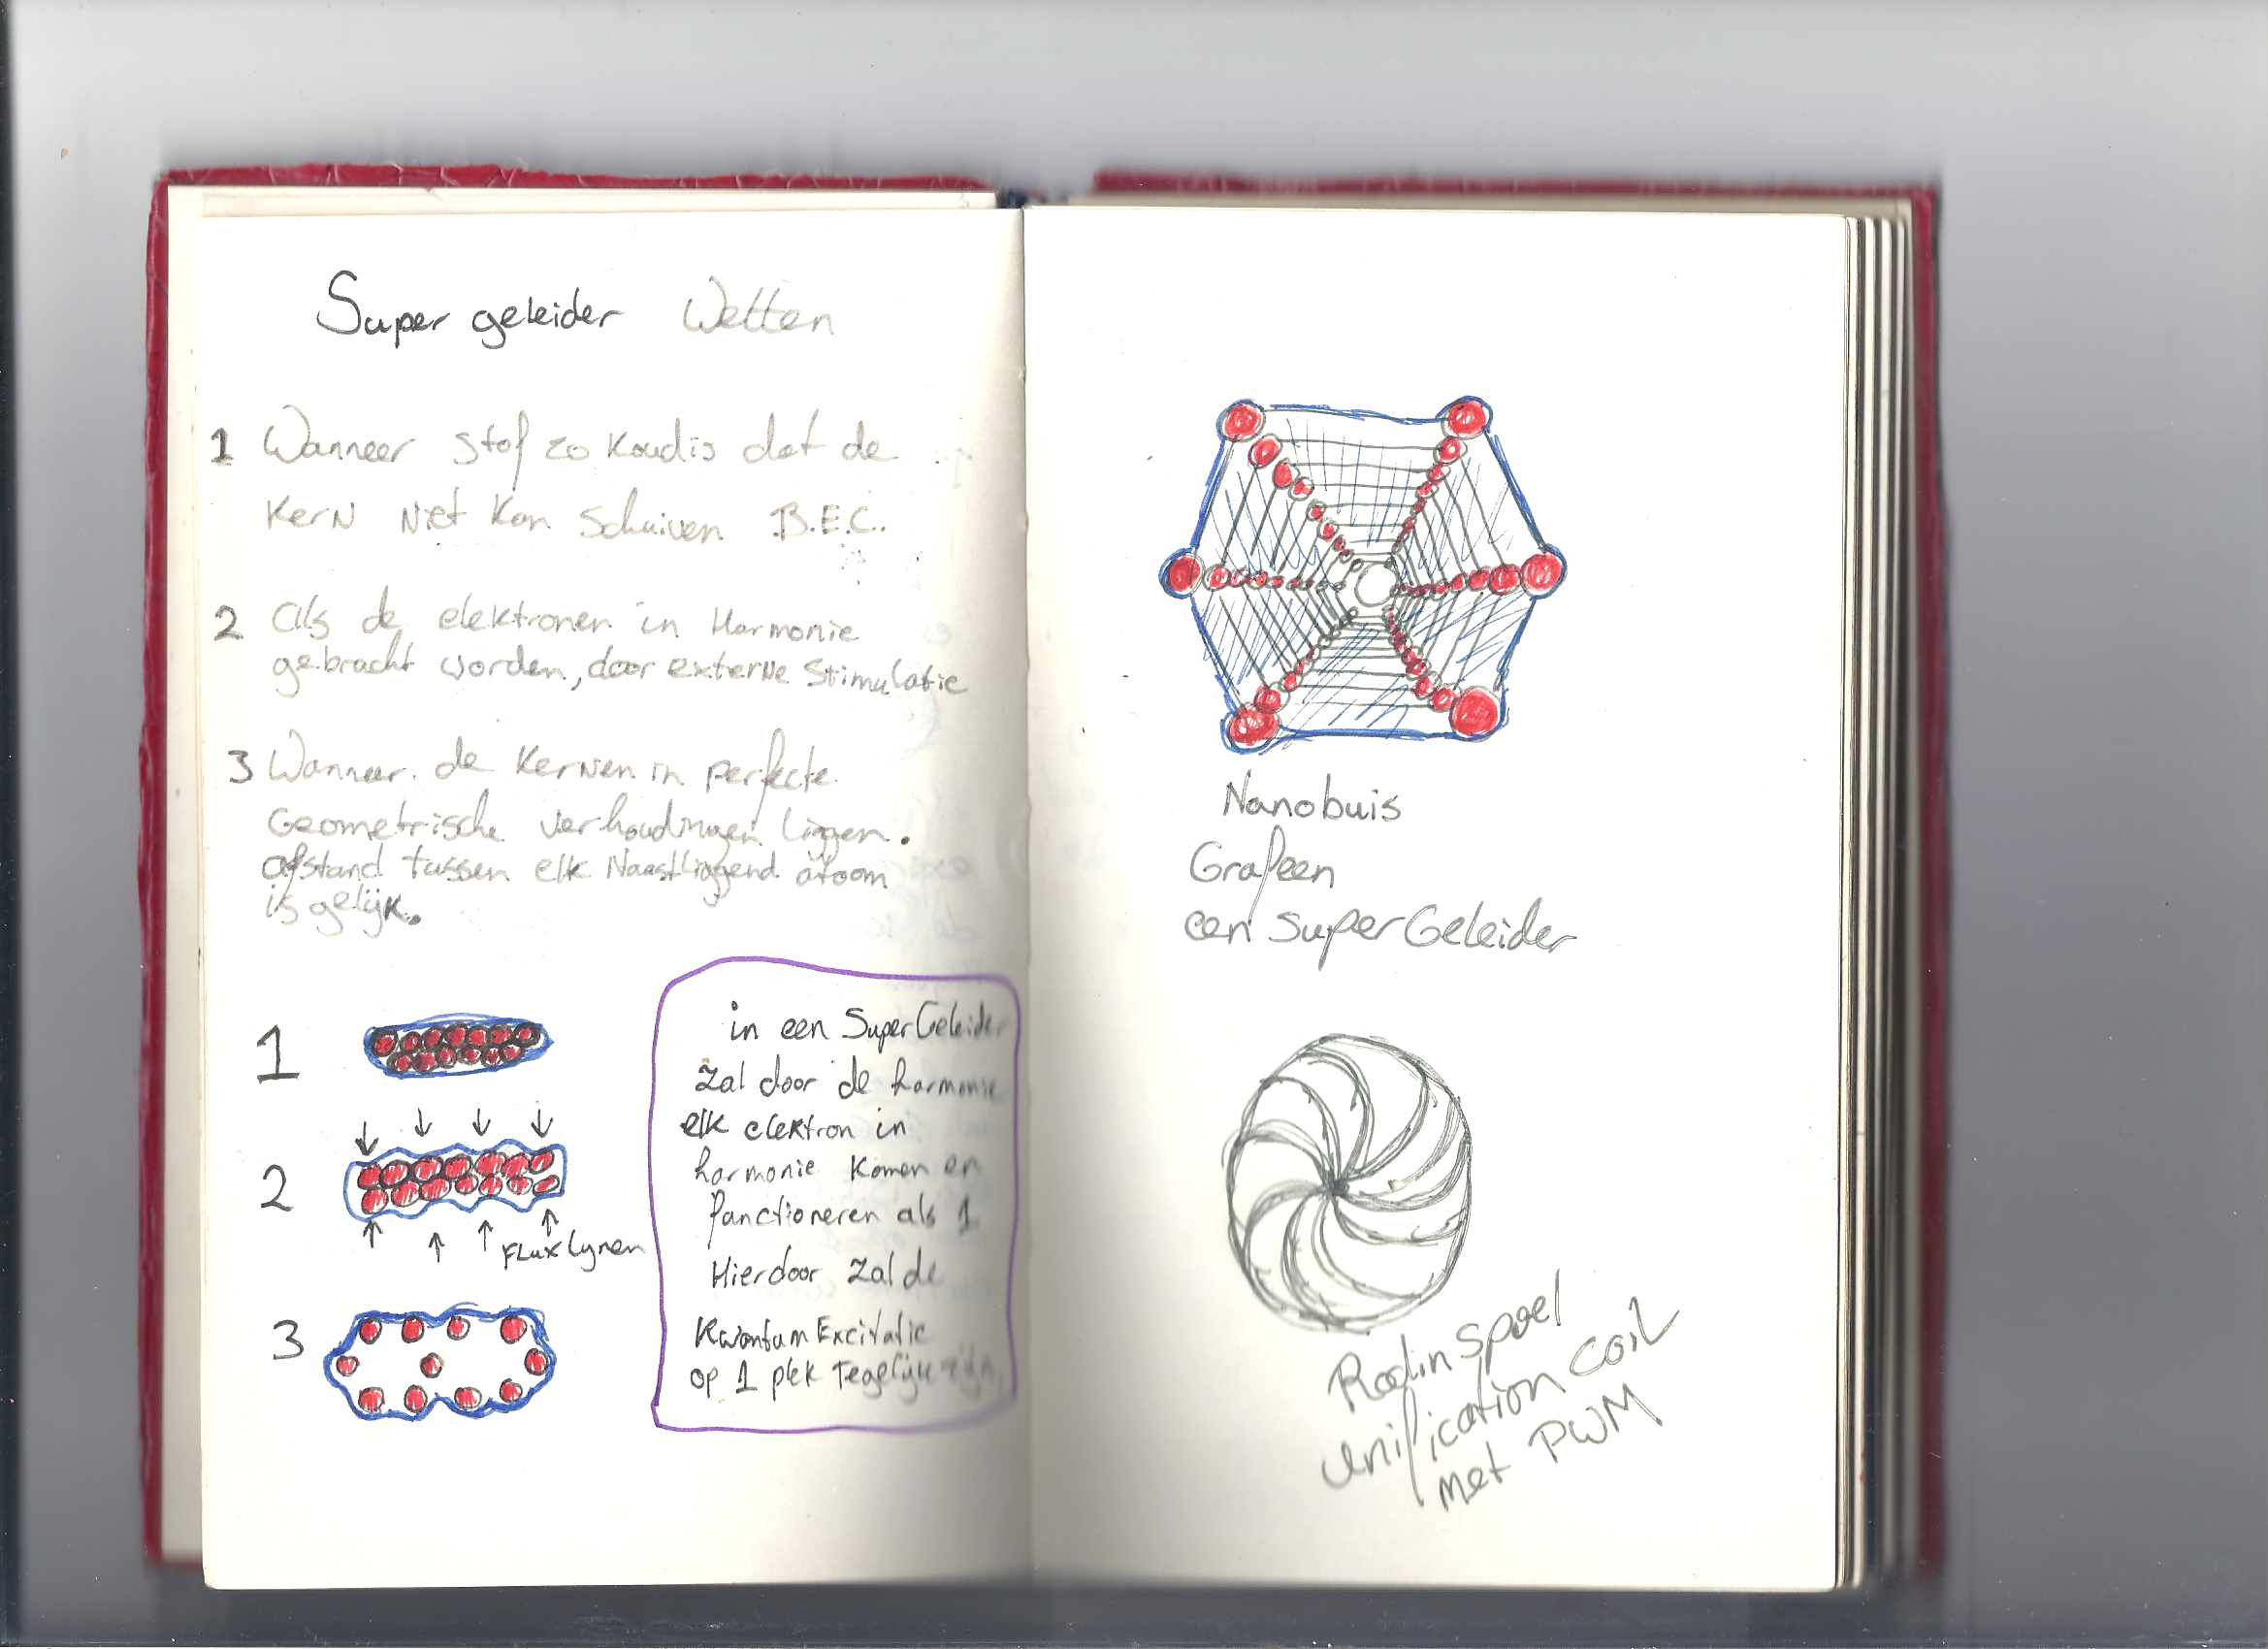 Super geleider Wetten
1 Wanneer stof zo koud is dat de
kern niet kan schuiven B.E.C.
2 Als de elektronen in Harmonie
gebracht worden, door externe Stimulatie
3 Wanneer de kernen in perfecte
Geometrische verhoudingen liggen.
afstand tussen elk Naastliggend atoom
is gelijk.
1
2
Fluxlynen
3
in een SuperGeleider
zal door de harmonie
elk elektron in
harmonie komen en
functioneren als 1
Hierdoor zal de
Kwantum Excitatie
op 1 plek Tegelijk zijn
Nanobuis
Grafeen
een superGeleider
Rodin spoel
unification coil
met PWM